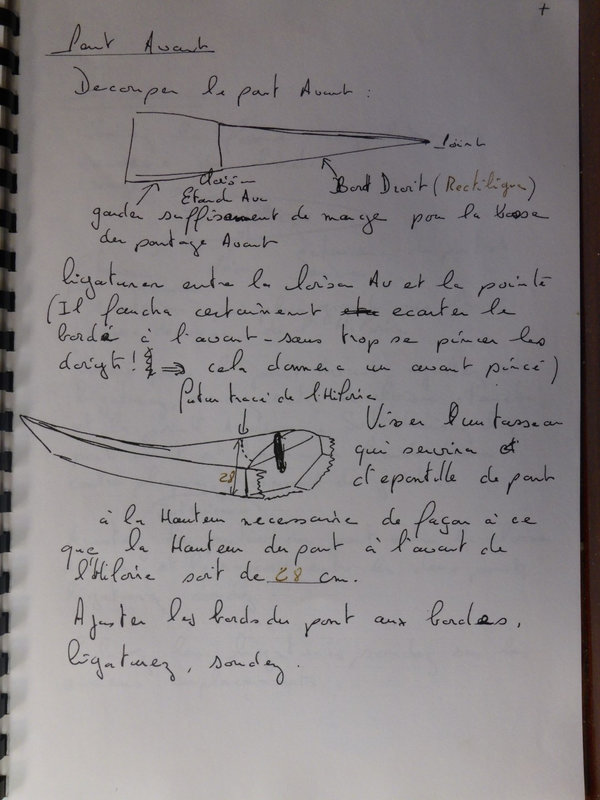 +
Pont Avant
Decouper le pont Avant :
Pointe
Cloison
Etanch Av
Bord Droit (Rectiligne)
garder suffisament de marge pour la
du pontage Avant
ligaturer entre la cloison Av et la pointe
(Il faudra certainement ecarter le
bordé à l'avant - sans trop se pincer les
doigts! ⇒ cela donnera un avant pincé)
futur tracé de l'Hiloire
Visser l'un tasseau
qui servira
d'epontille de pont
28
à la Hauteur necessaire de façon à ce
que la Hauteur du pont à l'avant de
l'Hiloire soit de 28 cm.
Ajuster les bords du pont aux bordes,
ligaturez, soudez.